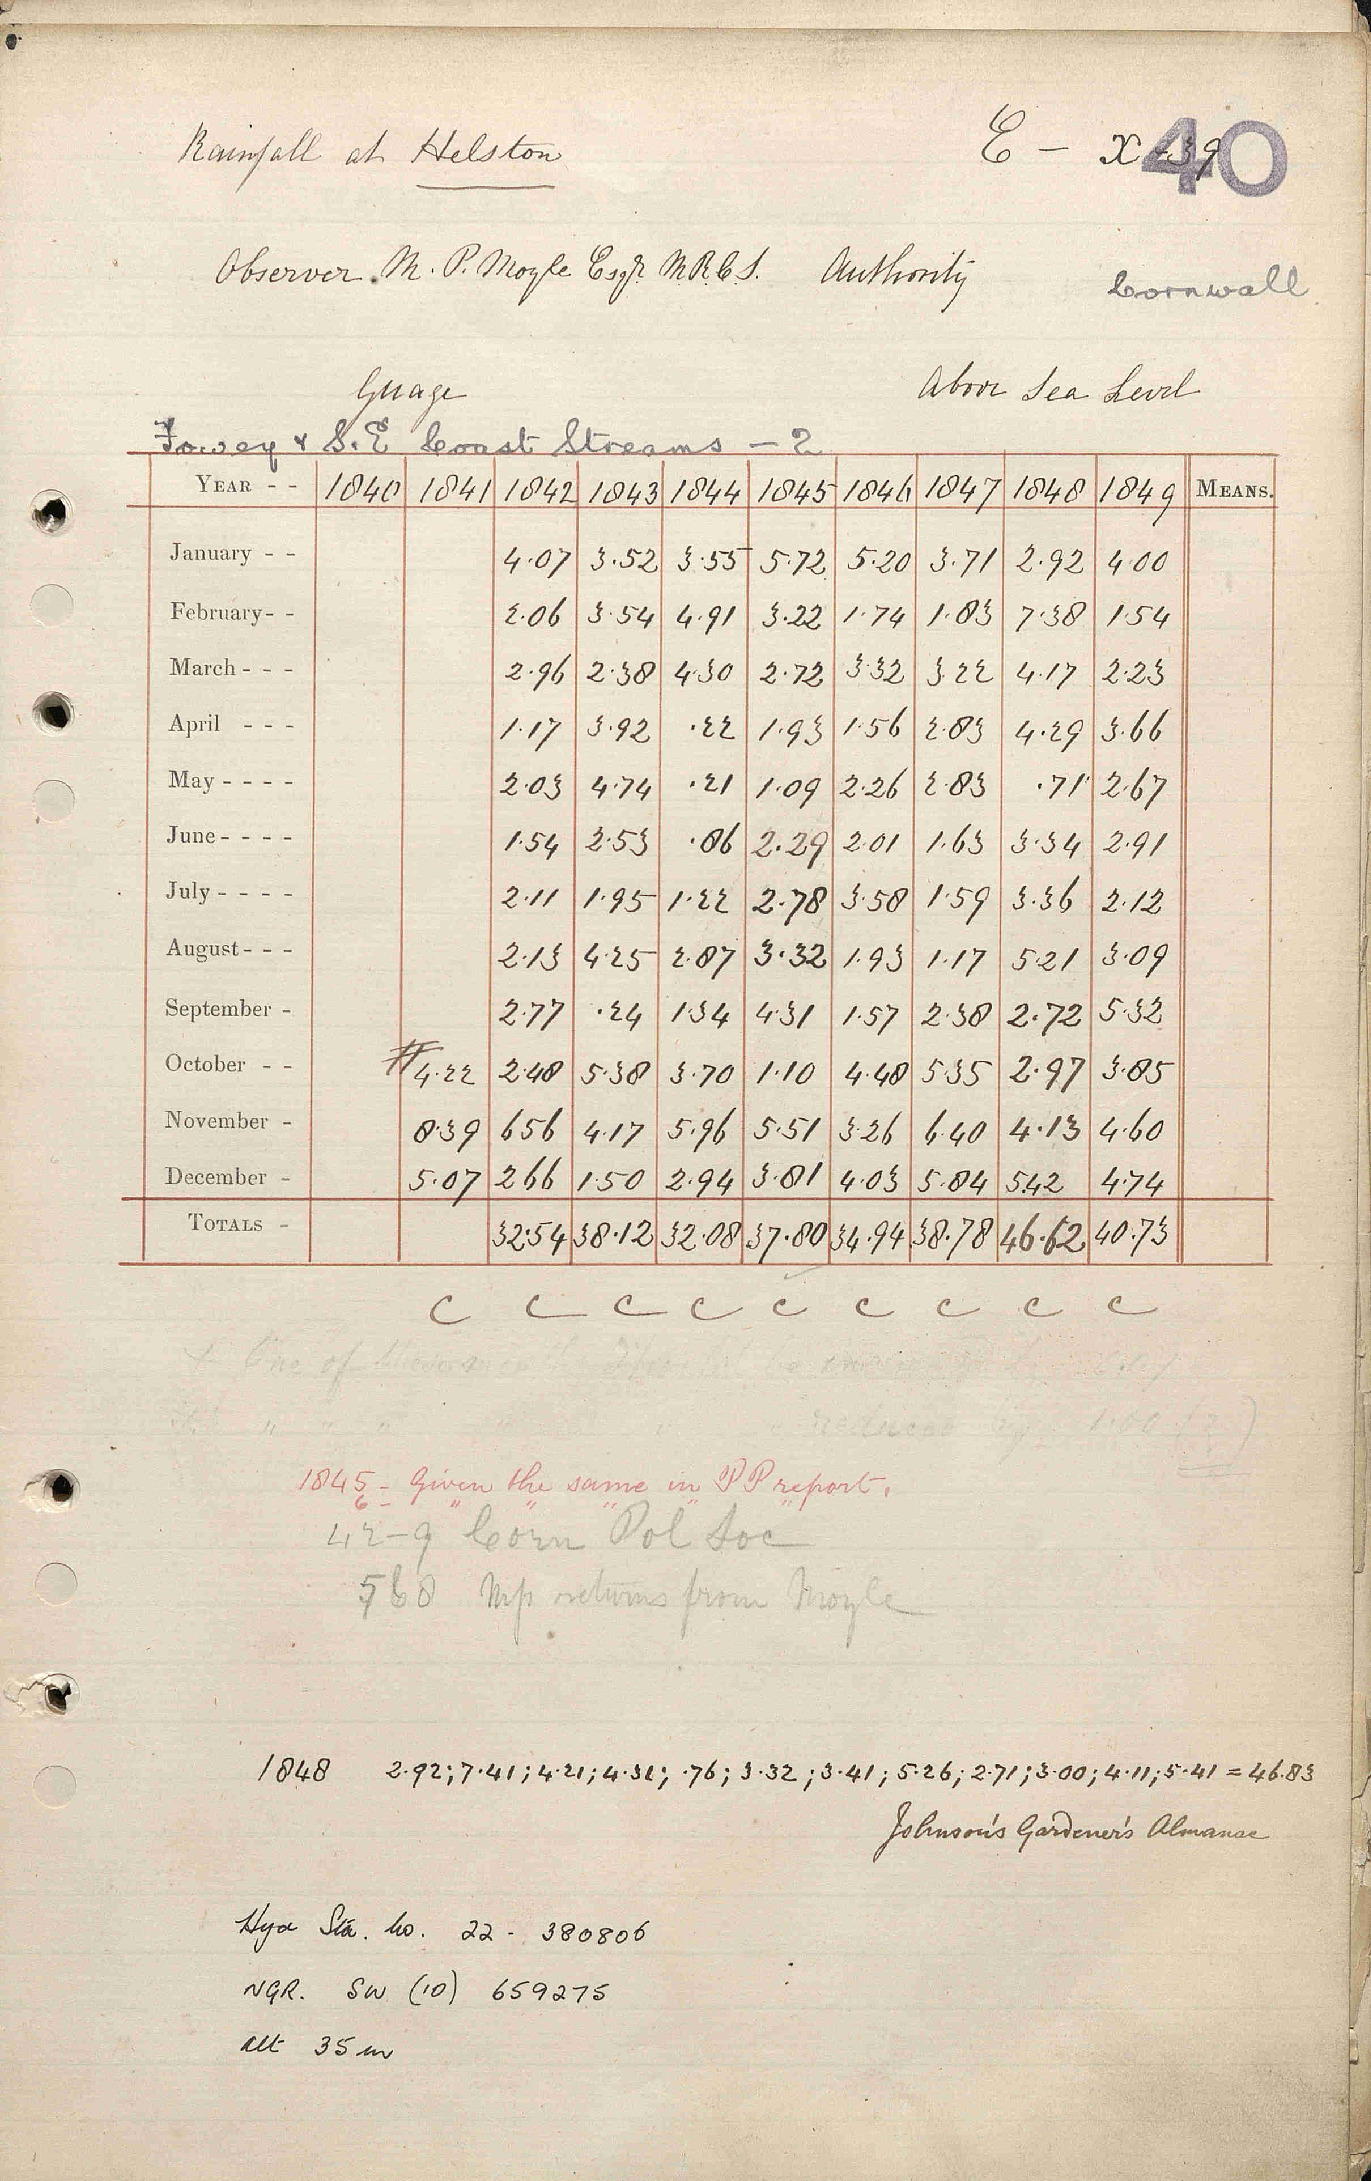 Rainfall at Helston
E – X 39
40
Observer M. P. Moyle Esqr. M.R.C.S. Authority
Cornwall
Guage Above Sea Level
Fowey & S.E Coast Streams – 2
YEAR - - 1840 1841 1842 1843 1844 1845 1846 1847 1848 1849 MEANS.
January - - 4.07 3.52 3.55 5.72 5.20 3.71 2.92 4.00
February - - 2.06 3.54 4.91 3.22 1.74 1.83 7.38 1.54
March - - - 2.96 2.38 4.30 2.72 3.32 3.22 4.17 2.23
April - - - 1.17 3.92 .22 1.93 1.56 2.83 4.29 3.66
May - - - - 2.03 4.74 .21 1.09 2.26 2.83 .71 2.67
June - - - - 1.54 2.53 .86 2.29 2.01 1.63 3.34 2.91
July - - - - 2.11 1.95 1.22 2.78 3.58 1.59 3.36 2.12
August - - - 2.13 4.25 2.87 3.32 1.93 1.17 5.21 3.09
September - 2.77 .24 1.34 4.31 1.57 2.38 2.72 5.32
October - - # 4.22 2.48 5.38 3.70 1.10 4.48 5.35 2.97 3.85
November - 8.39 6.56 4.17 5.96 5.51 3.26 6.40 4.13 4.60
December - 5.07 2.66 1.50 2.94 3.81 4.03 5.84 5.42 4.74
TOTALS - 32.54 38.12 32.08 37.80 34.94 38.78 46.62 40.73
C C C C C C C C C
One of be
" " " " " reduced by 1.00 (2)
1845 – Given the same in PP report.
6 – " " " " "
42–9 Corn Pol Soc
568 Mp returns from Moyle
1848 2.92; 7.41; 4.21; 4.31; .76; 3.32; 3.41; 5.26; 2.71; 3.00; 4.11; 5.41 = 46.83
Johnson's Gardener's Almanac
Hyd Sta. No. 22 - 380806
NGR. SW (10) 659275
Alt 35 m